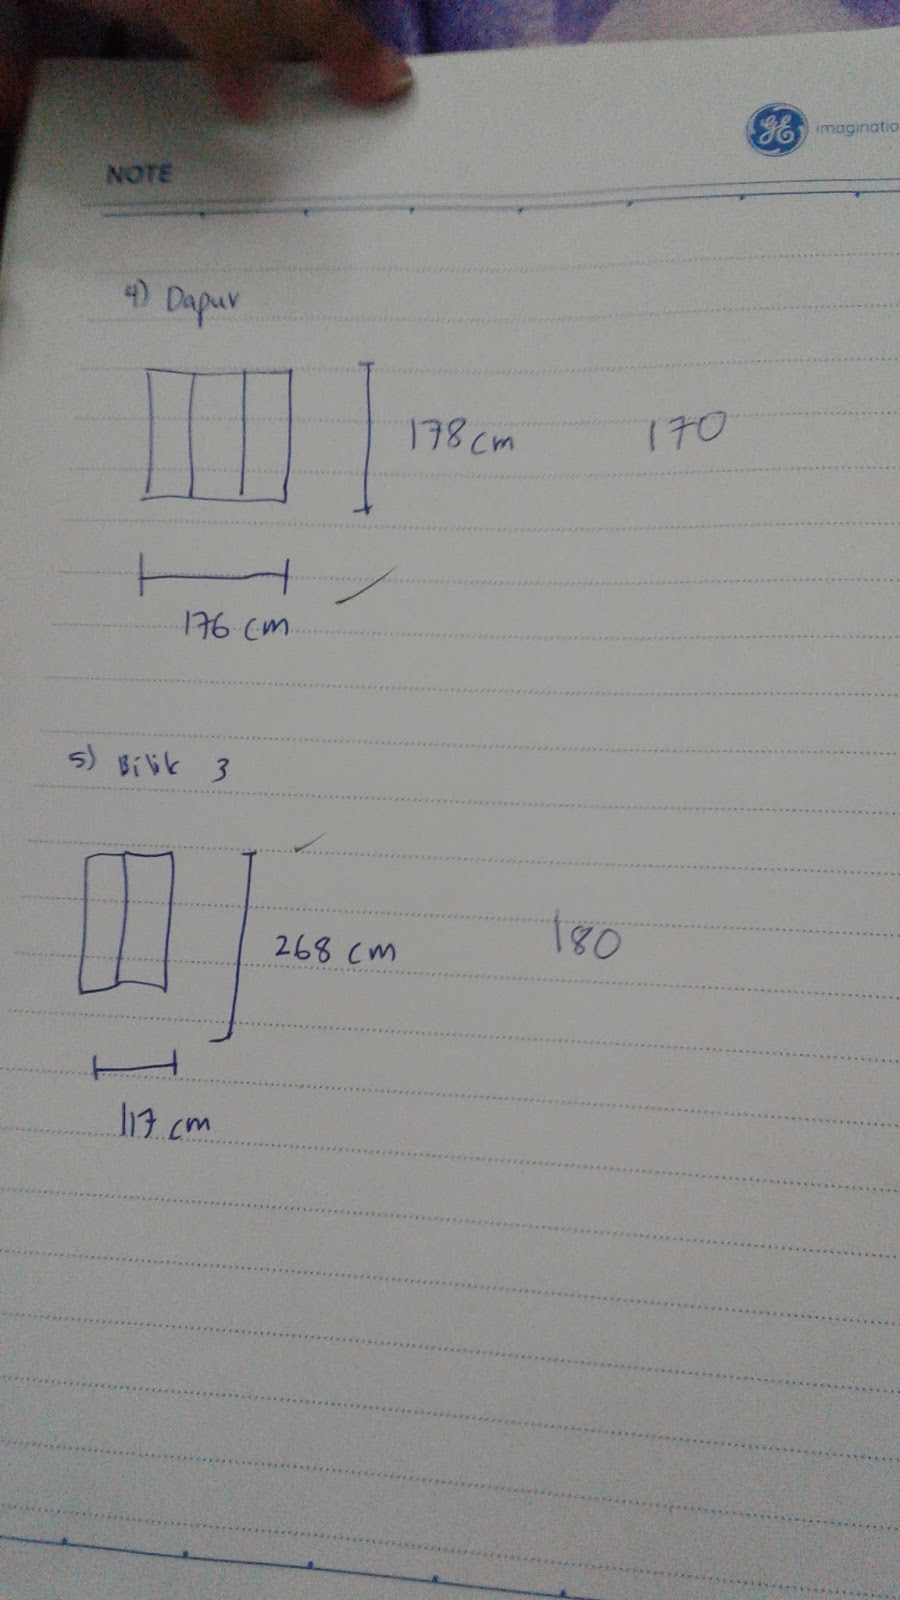 GE imaginatio
NOTE
4) Dapur
178 cm 170
176 cm
5) Bilik 3
268 cm 180
117 cm